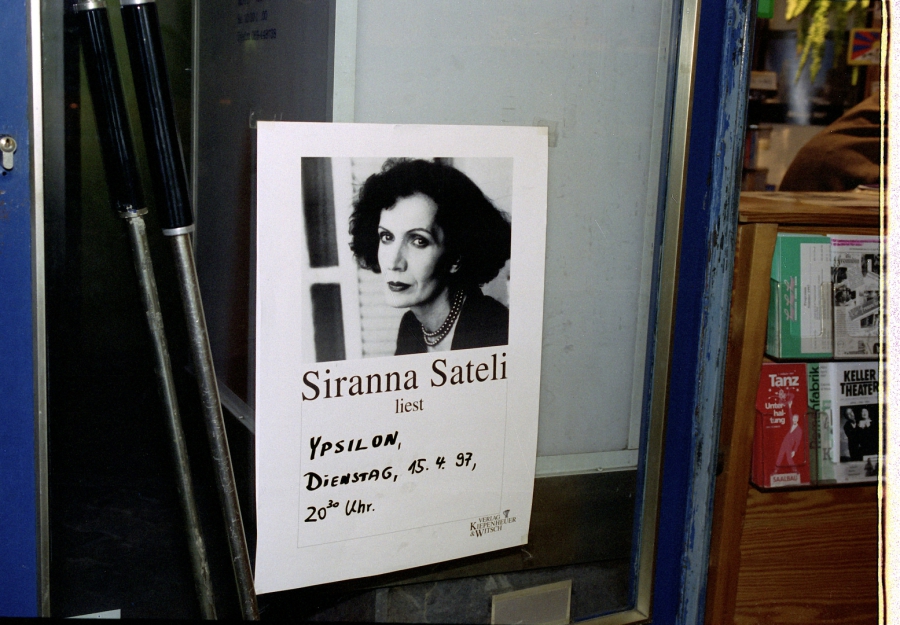 Siranna Sateli
liest
YPSILON,
DIENSTAG, 15. 4. 97,
20³⁰ Uhr.
VERLAG
KIEPENHEUER
& WITSCH
Tanz
Unter-
hal-
tung
SAALBAU
KELLER
THEATER